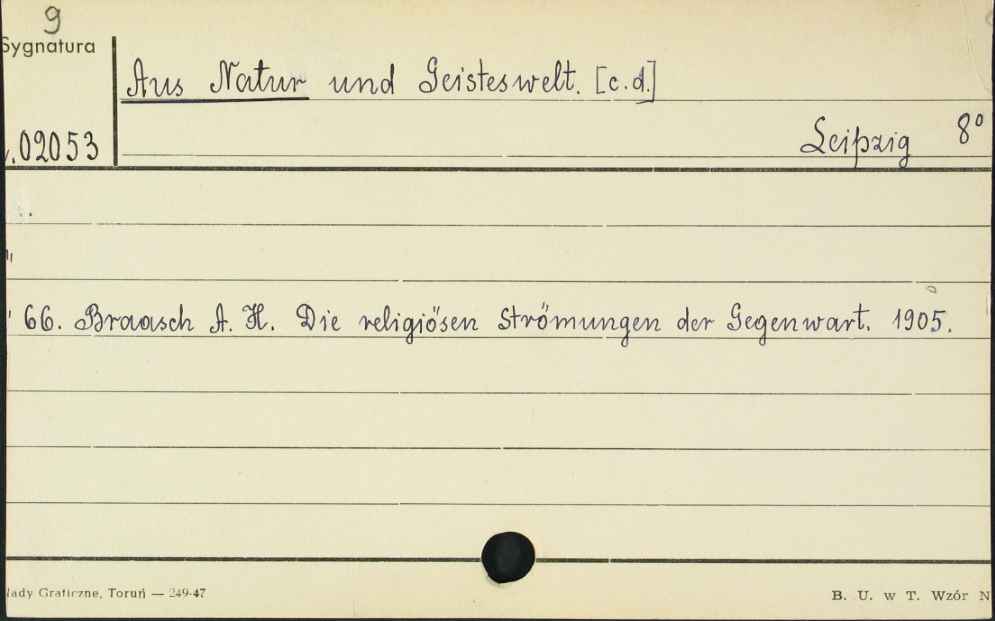 9
Sygnatura
Aus Natur und Geisteswelt. [c.d.]
.02053
Leipzig 8°
" 66. Braasch A. H. Die religiösen Strömungen der Gegenwart. 1905.
łady Graficzne, Toruń — 249-47
B. U. w T. Wzór N